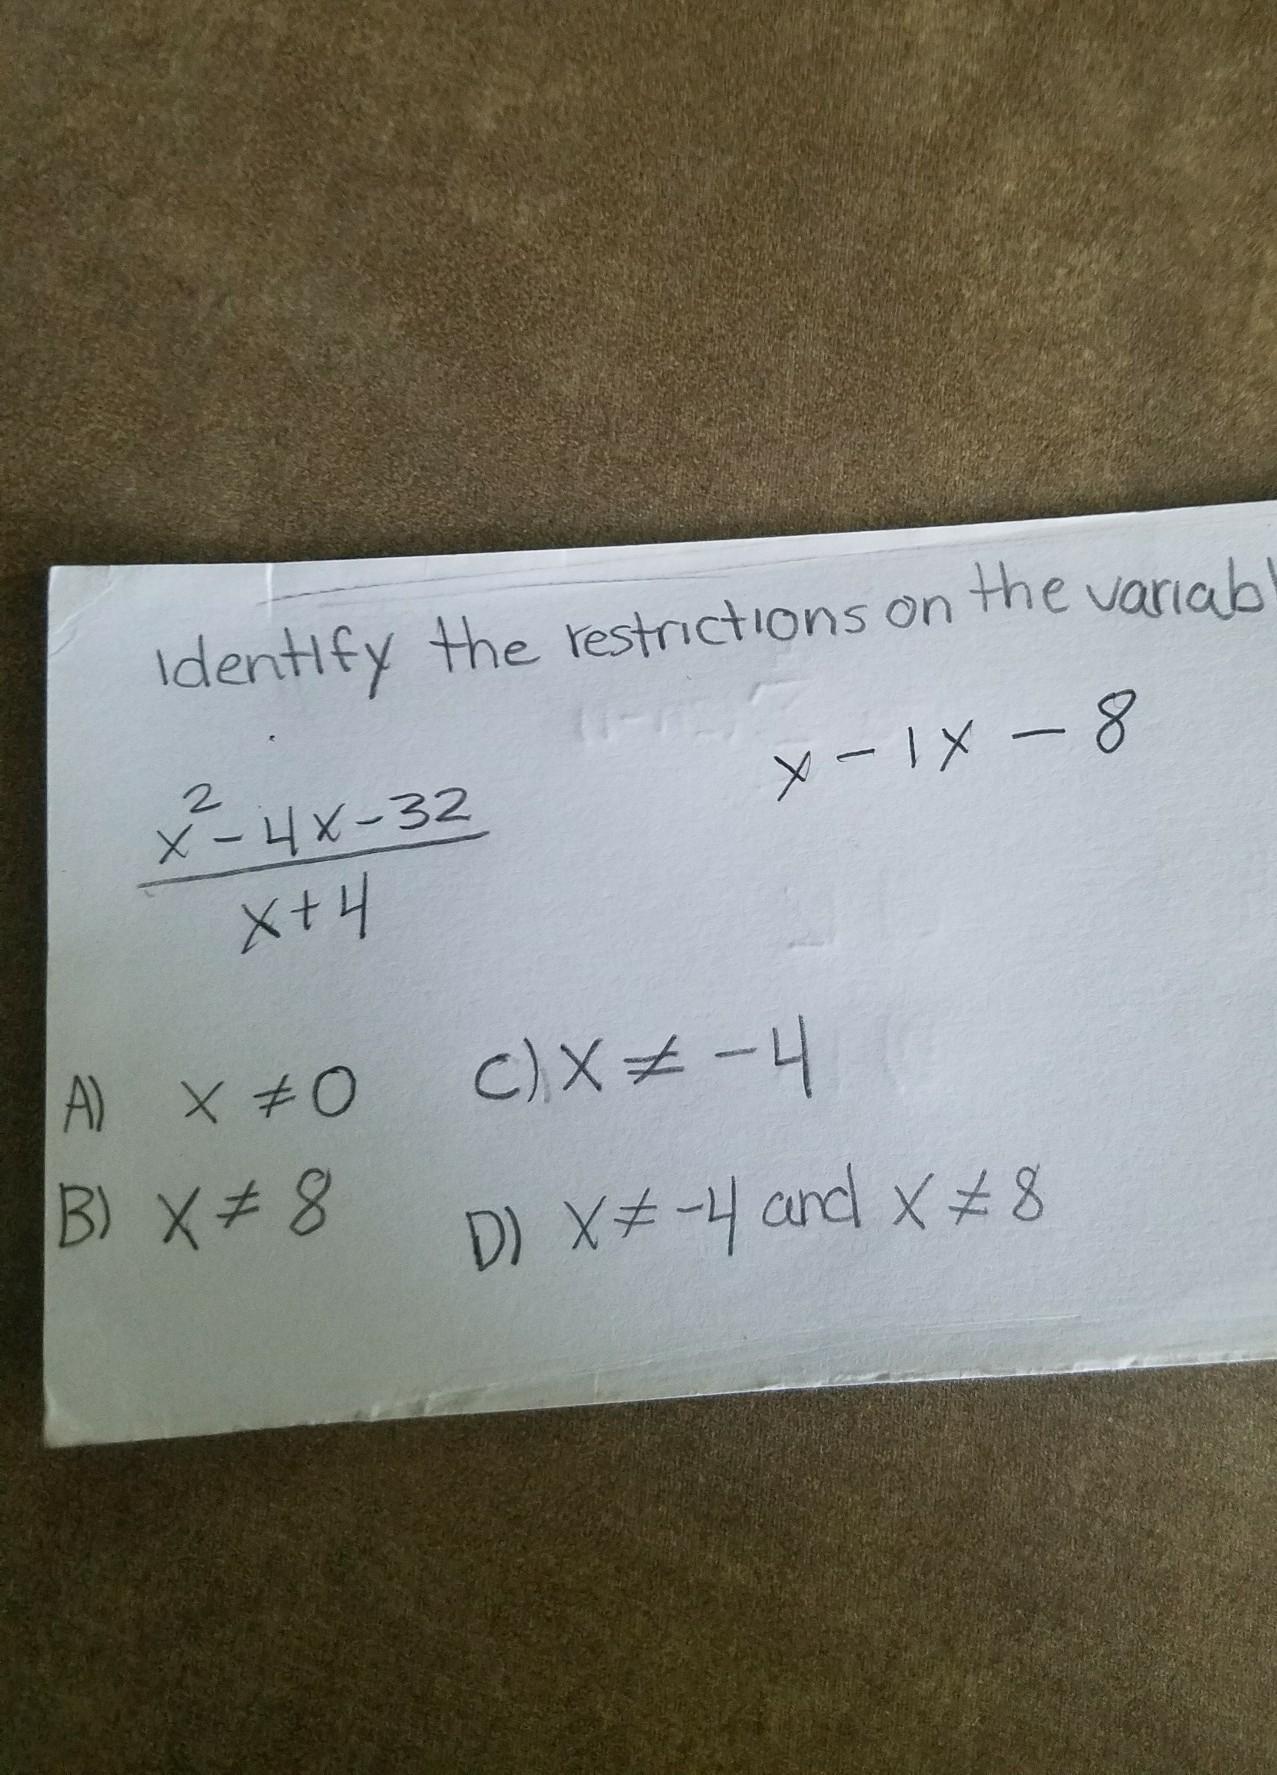 Identify the restrictions on the variabl
x² - 4x - 32
x + 4
x - 1x - 8
A) x ≠ 0
C) x ≠ -4
B) x ≠ 8
D) x ≠ -4 and x ≠ 8